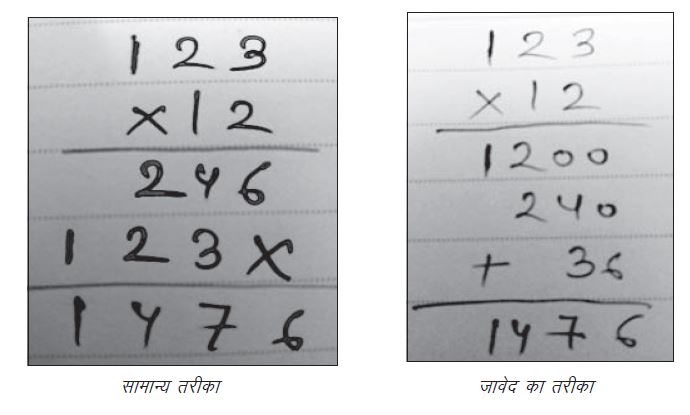 123
×12
246
123×
1476
सामान्य तरीका
123
×12
1200
240
+ 36
1476
जावेद का तरीका